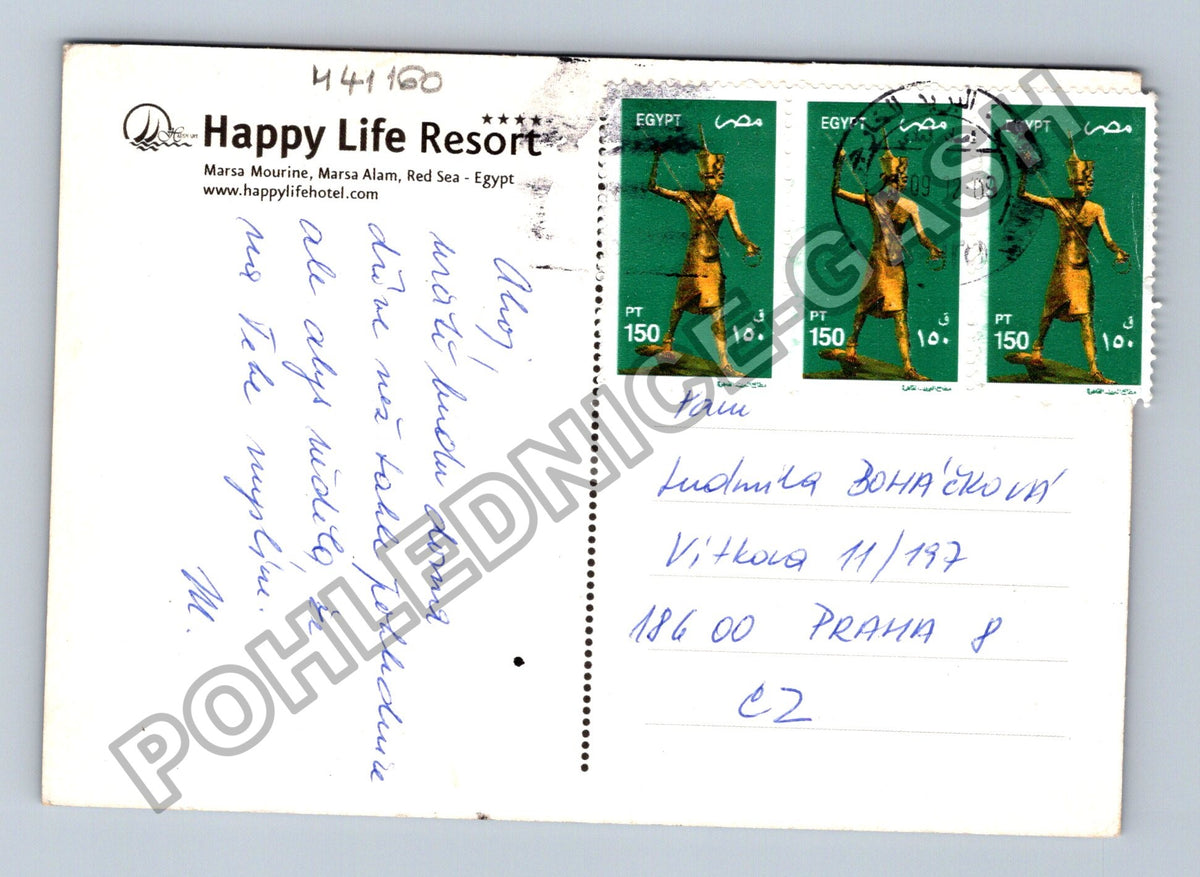 M41160
Happy Life Resort
Marsa Mourine, Marsa Alam, Red Sea - Egypt
www.happylifehotel.com
Ahoj,
budu doma
dříve než tahle pohlednice
ale abys viděla že
na Tebe myslím.
M.
EGYPT مصر
PT
150 ١٥٠ ق
EGYPT مصر
PT
150 ١٥٠ ق
EGYPT مصر
PT
150 ١٥٠ ق
البريد
Paní
Ludmila BOHÁČKOVÁ
Vítkova 11/197
186 00 PRAHA 8
CZ
POHLEDNICE-GASH